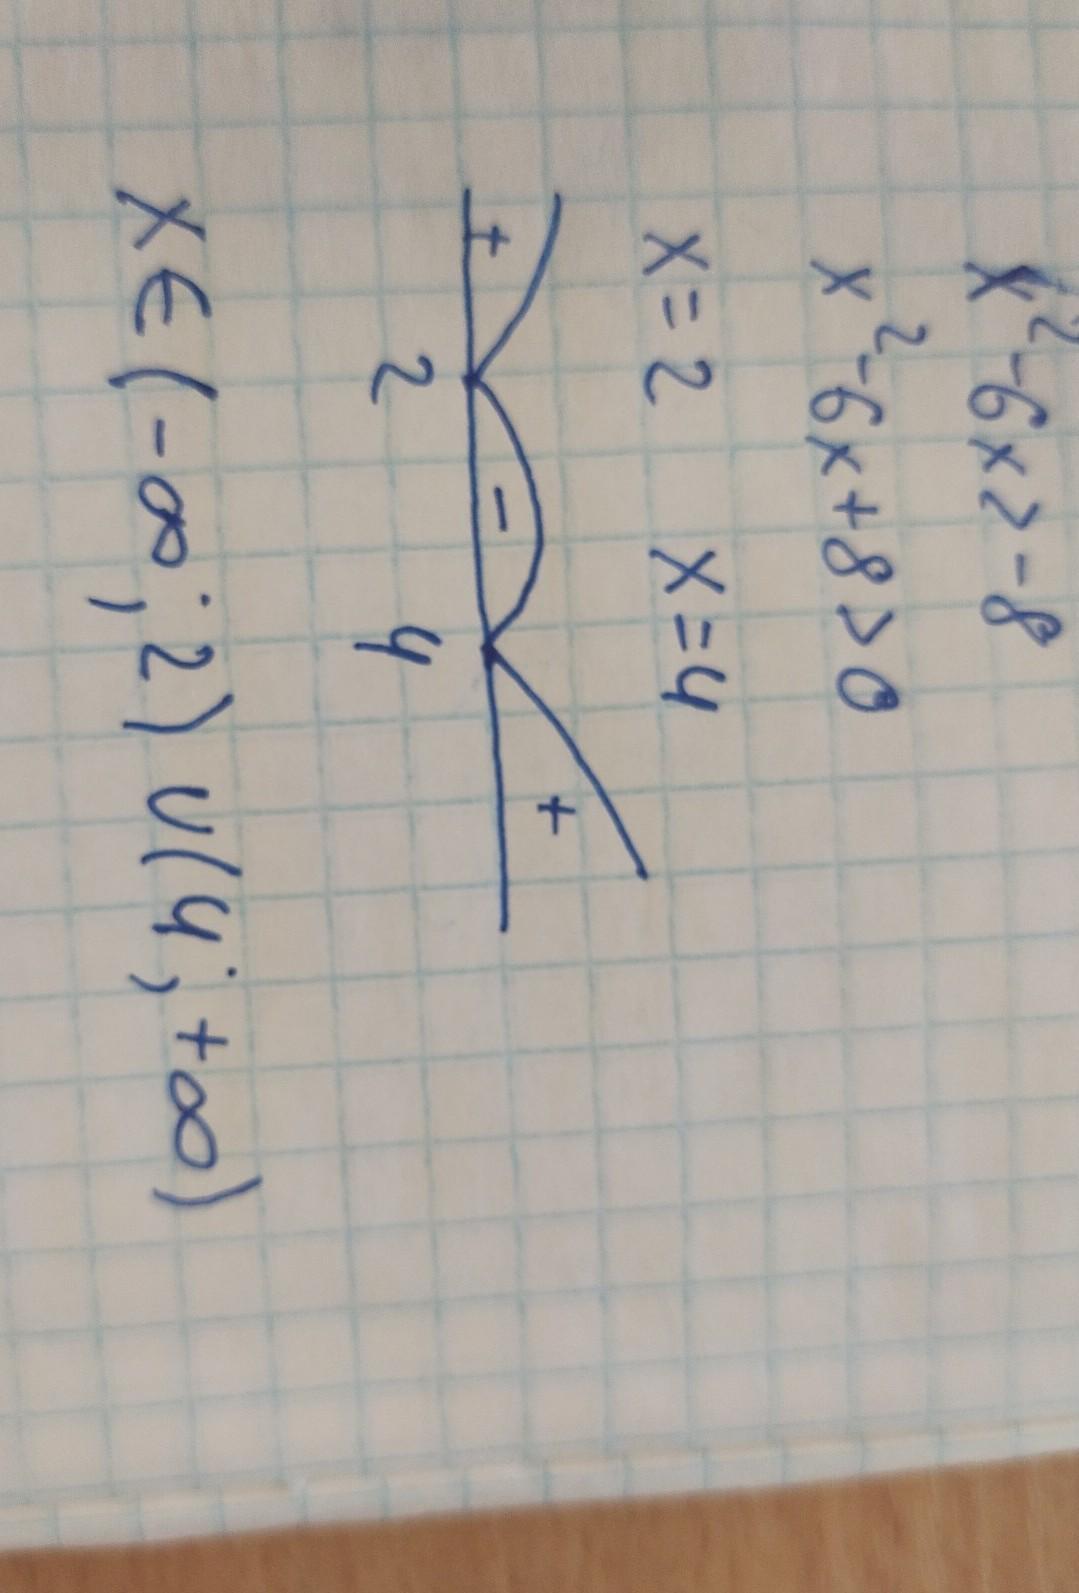 x²-6x>-8
x²-6x+8>0
x=2 x=4
+ - +
2 4
x∈(-∞;2)∪(4;+∞)